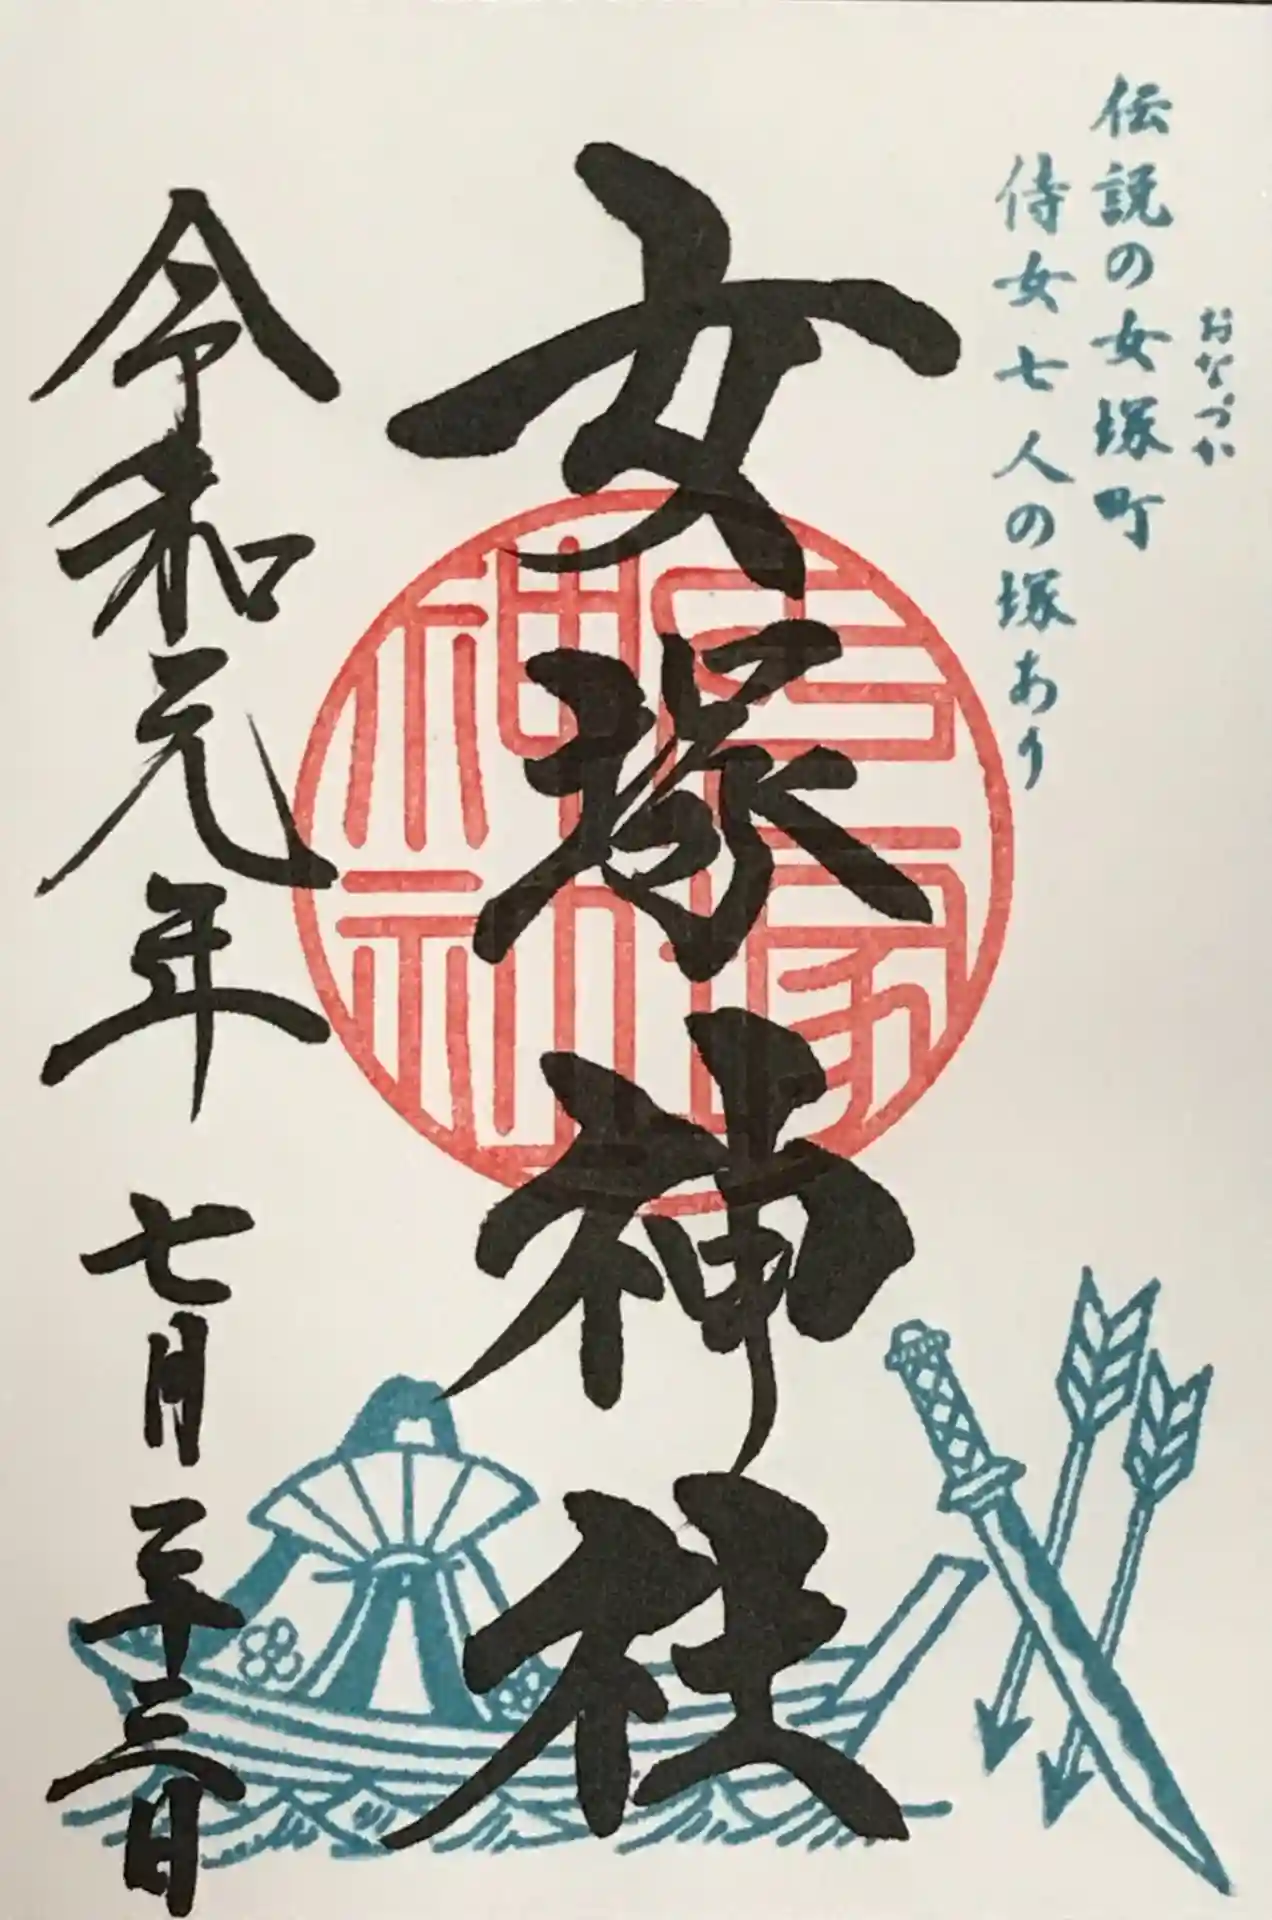 おなづか
伝説の女塚町
侍女七人の塚あり
女塚神社
女塚
神社
令和元年 七月二十三日